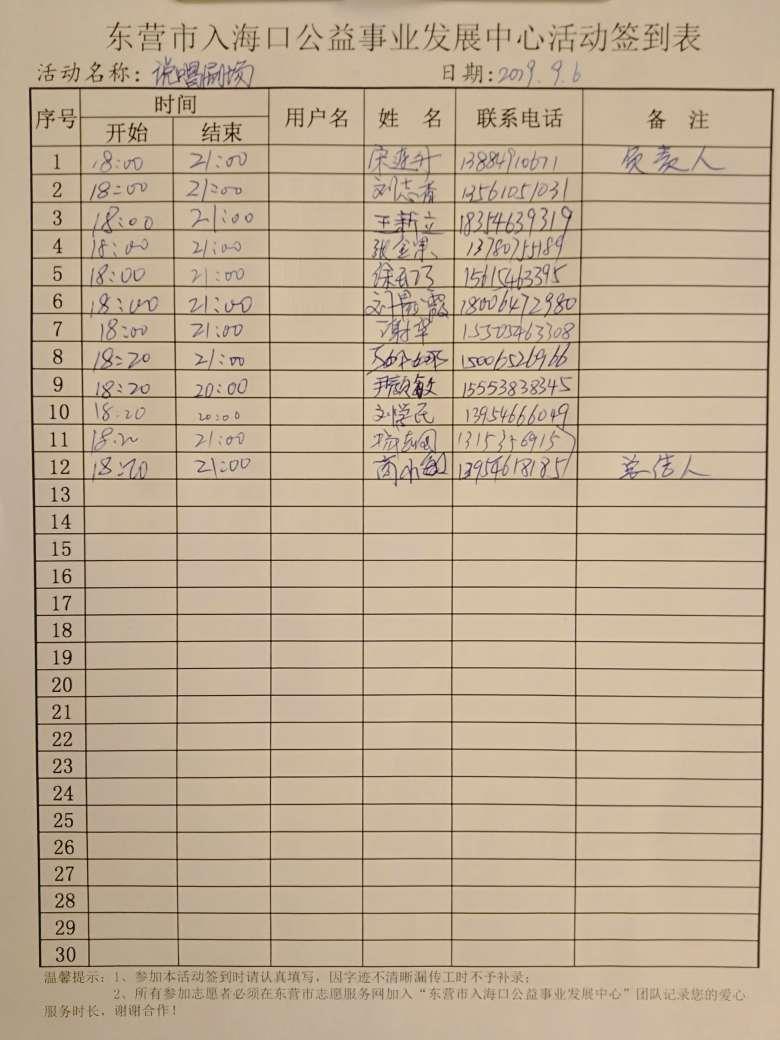 东营市入海口公益事业发展中心活动签到表
活动名称：说唱剧场 日期：2019.9.6
序号 时间 用户名 姓名 联系电话 备注
开始 结束
1 18:00 21:00 13884910671 负责人
2 18:00 21:00 刘志香 13561051031
3 18:00 21:00 王新立 18354639319
4 18:00 21:00 张金果 13780755189
5 18:00 21:00 15615463395
6 18:00 21:00 18006472980
7 18:00 21:00 谢翠 15505463308
8 18:20 21:00 15006526966
9 18:20 20:00 敏 15553838345
10 18:20 20:00 刘学民 13954666049
11 18:20 21:00
12 18:20 21:00 商 13954618185 总结人
13
14
15
16
17
18
19
20
21
22
23
24
25
26
27
28
29
30
温馨提示：1、参加本活动签到时请认真填写，因字迹不清晰漏传工时不予补录；
2、所有参加志愿者必须在东营市志愿服务网加入“东营市入海口公益事业发展中心”团队记录您的爱心
服务时长，谢谢合作！